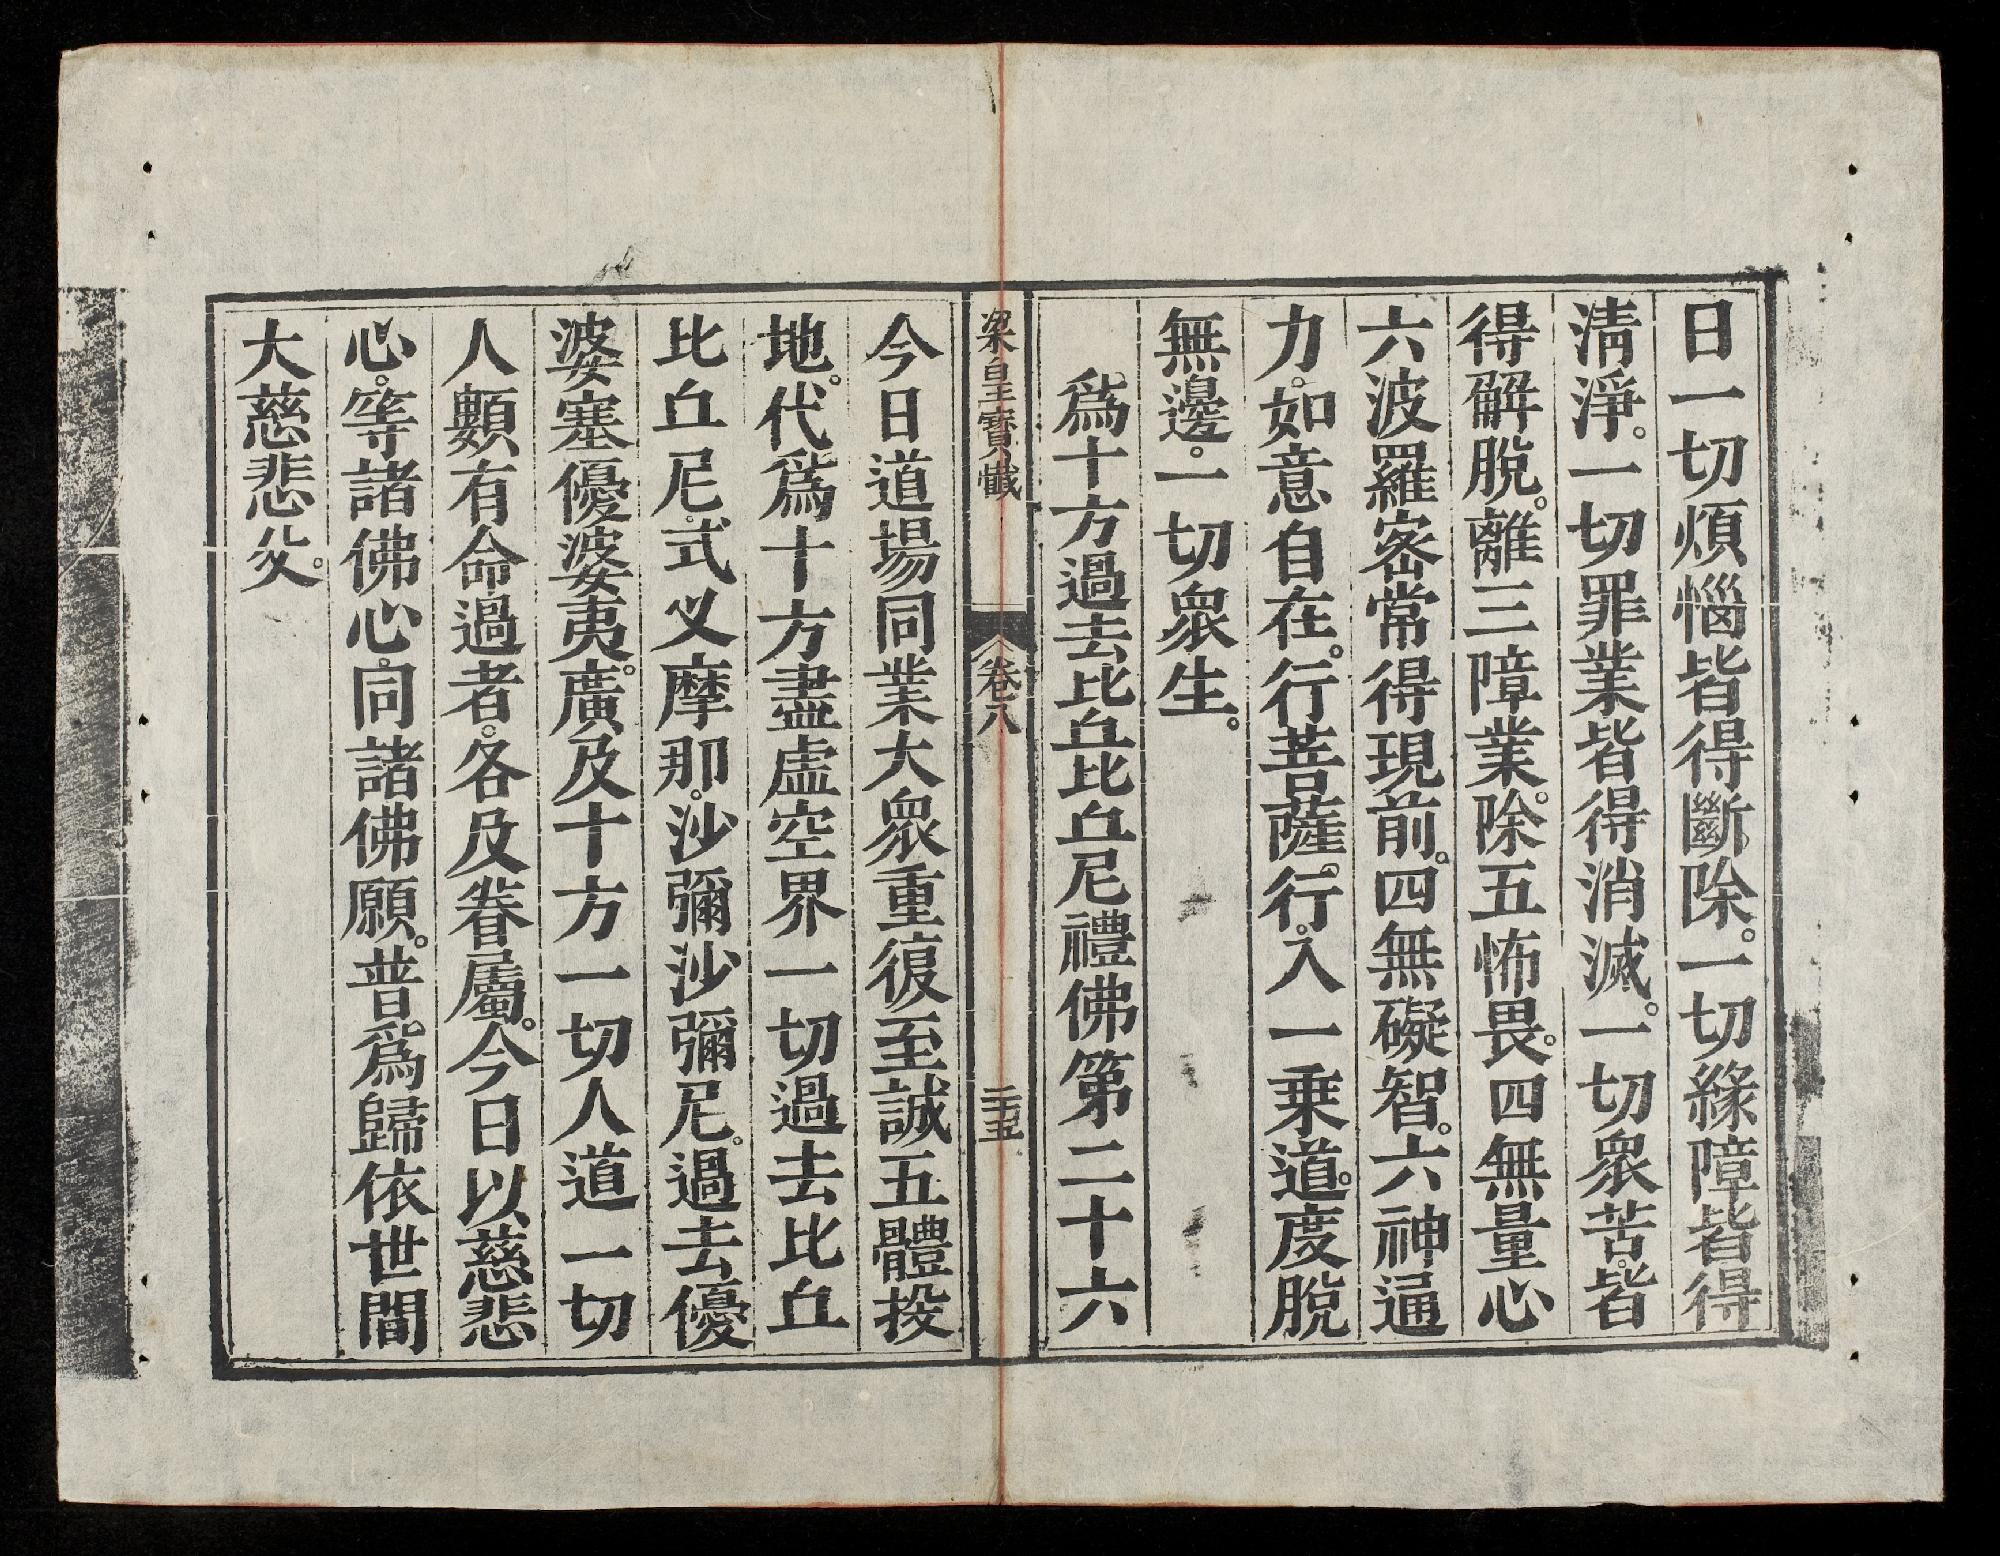 日一切煩惱皆得斷除。一切緣障皆得
清淨。一切罪業皆得消滅。一切衆苦。皆
得解脫。離三障業。除五怖畏。四無量心
六波羅密常得現前。四無礙智。六神通
力。如意自在。行菩薩行。入一乗道。度脫
無邊。一切衆生。
爲十方過去比丘比丘尼禮佛第二十六
梁皇寶懺
卷八
二十五
今日道場同業大衆重復至誠五體投
地。代爲十方盡虛空界一切過去比丘
比丘尼。式叉摩那。沙彌沙彌尼。過去優
婆塞優婆夷。廣及十方一切人道一切
人類有命過者。各及眷屬。今日以慈悲
心。等諸佛心。同諸佛願。普爲歸依世間
大慈悲父。